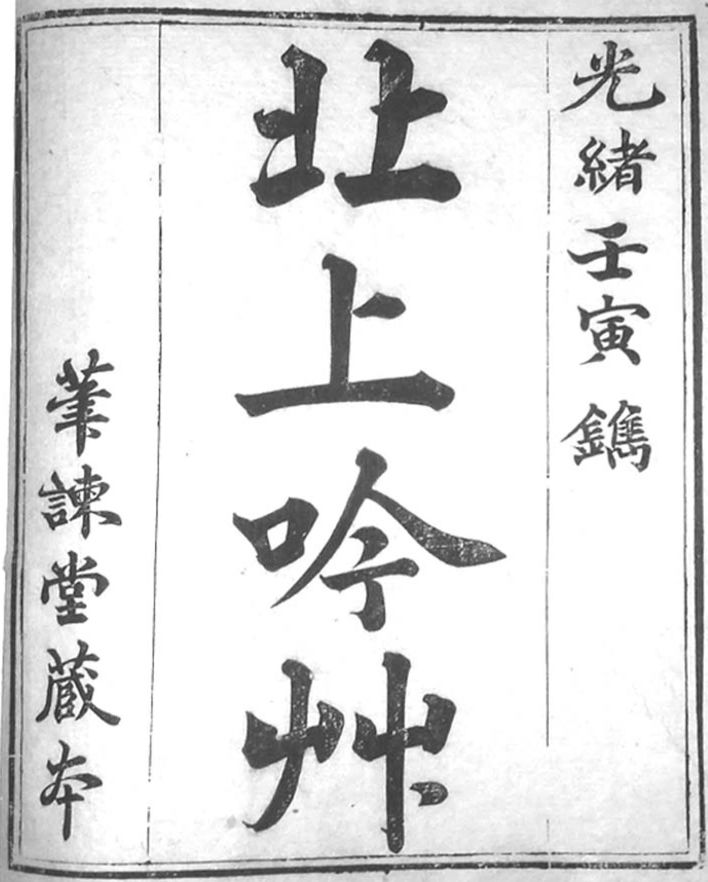 光緒壬寅鐫
北上吟艸
筆諫堂藏本